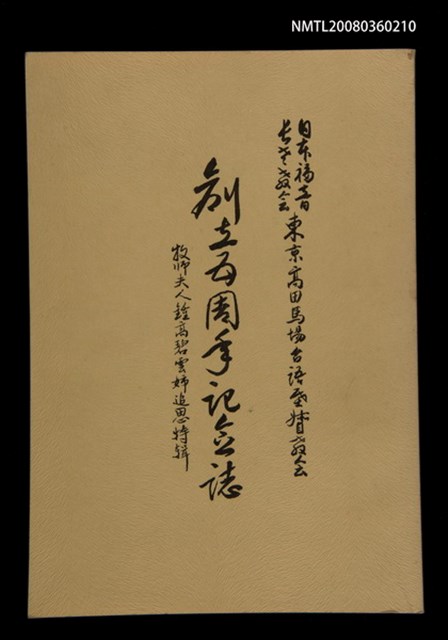 NMTL20080360210
日本福音
長老教会
東京高田馬場台語基督教会
創立五周年記念誌
牧師夫人鍾高碧雲姉追思特輯